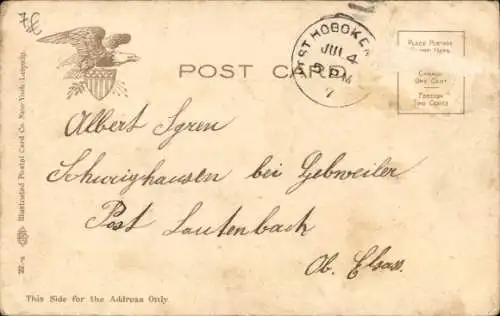 POST CARD
WEST HOBOKEN
JUL 4
5 PM
7
PLACE POSTAGE
CANADA
ONE CENT
FOREIGN
TWO CENTS
Albert Sgren
Schwighausen bei Gebweiler
Post Lautenbach
Ob. Elsass.
Illustrated Postal Card Co. New York-Leipzig.
This Side for the Address Only.